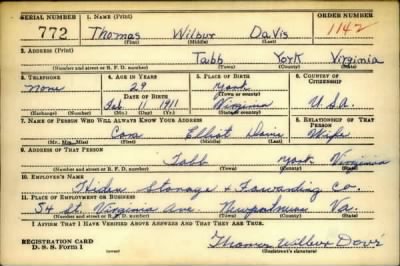 SERIAL NUMBER 1. NAME (Print) ORDER NUMBER
772 Thomas Wilbur Davis 1142
(First) (Middle) (Last)
2. ADDRESS (Print)
Tabb York Virginia
(Number and street or R. F. D. number) (Town) (County) (State)
3. TELEPHONE 4. AGE IN YEARS 5. PLACE OF BIRTH 6. COUNTRY OF CITIZENSHIP
None 29 York
DATE OF BIRTH (Town or county)
Feb 11 1911 Virginia U.S.A.
(Exchange) (Number) (Mo.) (Day) (Yr.) (State or country)
7. NAME OF PERSON WHO WILL ALWAYS KNOW YOUR ADDRESS 8. RELATIONSHIP OF THAT PERSON
Cora Elliot Davis Wife
(Mr., Mrs., Miss) (First) (Middle) (Last)
9. ADDRESS OF THAT PERSON
Tabb York Virginia
(Number and street or R. F. D. number) (Town) (County) (State)
10. EMPLOYER'S NAME
Hiden Storage & Forwarding Co.
11. PLACE OF EMPLOYMENT OR BUSINESS
54 St. Virginia Ave. Newport News Va.
(Number and street or R. F. D. number) (Town) (County) (State)
I AFFIRM THAT I HAVE VERIFIED ABOVE ANSWERS AND THAT THEY ARE TRUE.
REGISTRATION CARD
D. S. S. Form 1 Thomas Wilbur Davis
(Registrant's signature)